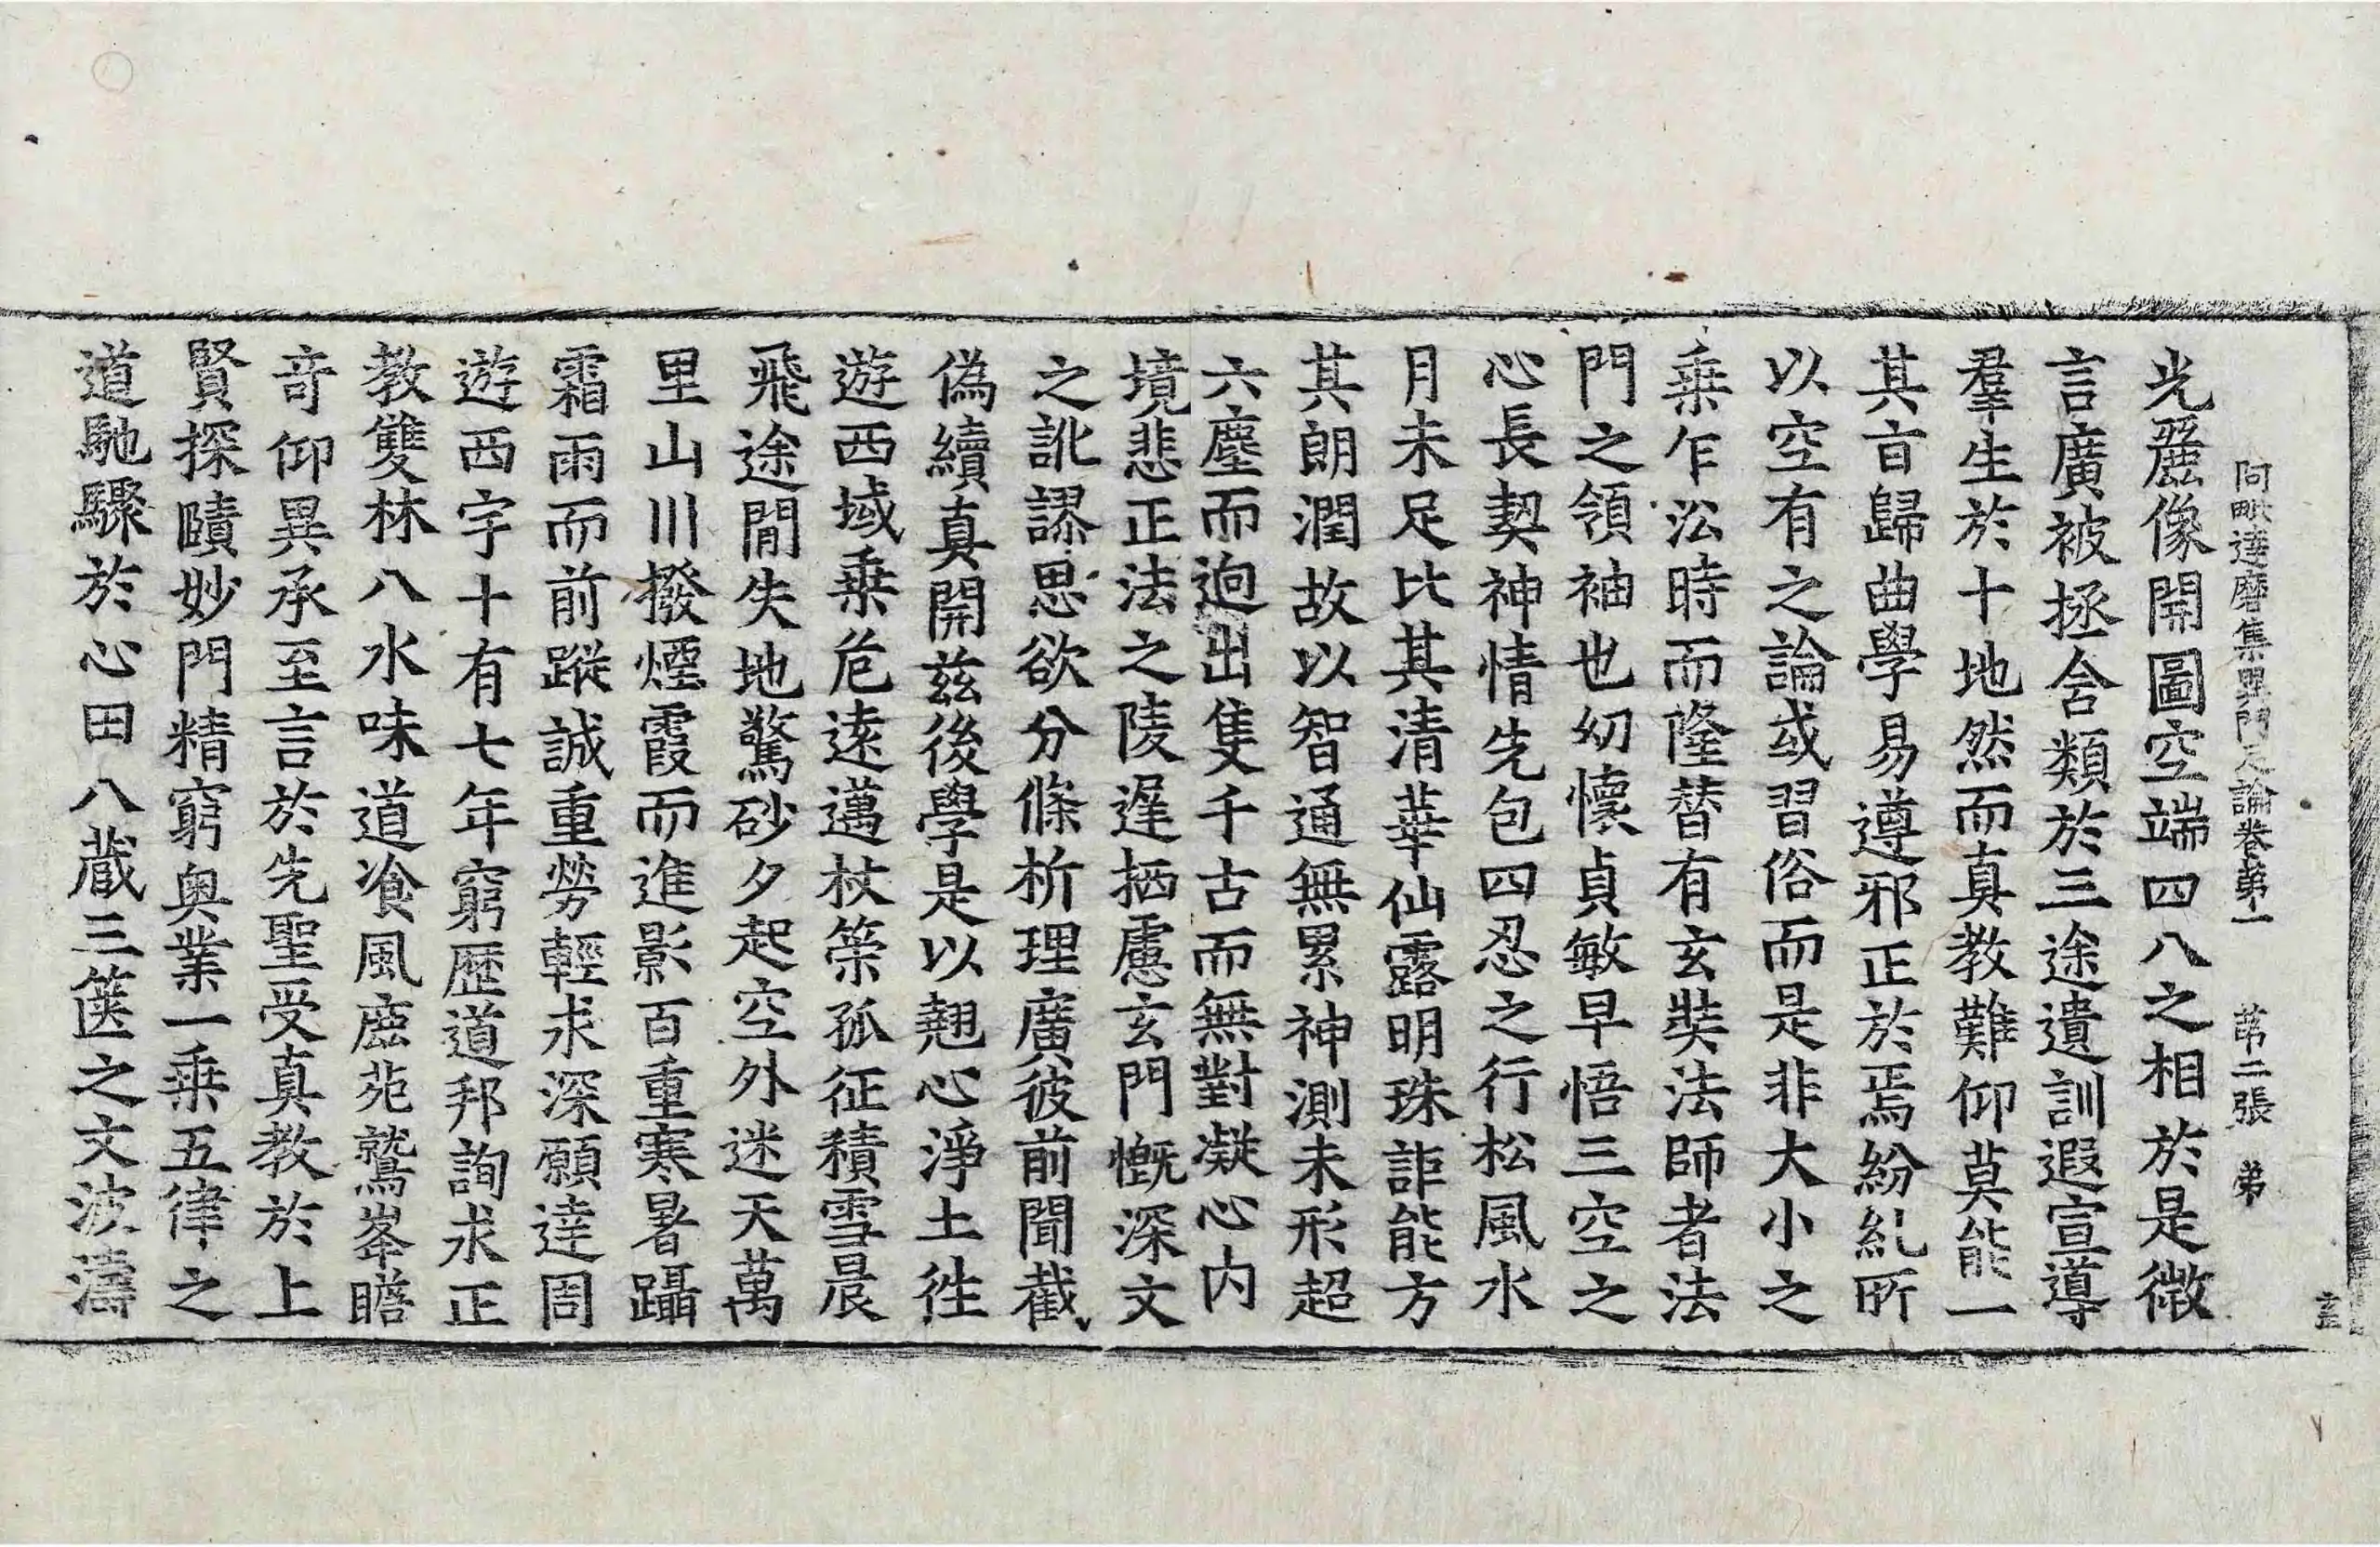 阿毗達磨集異門足論卷第一 第二張 弟
玄
光麗像開圖空端四八之相於是微
言廣被拯含類於三途遺訓遐宣導
羣生於十地然而真教難仰莫能一
其旨歸曲學易遵邪正於焉紛糺所
以空有之論或習俗而是非大小之
乗乍訟時而隆替有玄奘法師者法
門之領袖也幼懷貞敏早悟三空之
心長契神情先包四忍之行松風水
月未足比其清華仙露明珠詎能方
其朗潤故以智通無累神測未形超
六塵而逈出隻千古而無對凝心内
境悲正法之陵遅栖慮玄門慨深文
之訛謬思欲分條析理廣彼前聞截
偽續真開兹後學是以翹心淨土徃
遊西域乗危逺邁杖䇿孤征積雪晨
飛途閒失地驚砂夕起空外迷天萬
里山川撥煙霞而進影百重寒暑躡
霜雨而前蹤誠重勞輕求深願達周
遊西宇十有七年窮歴道邦詢求正
教雙林八水味道飡風鹿苑鷲峯瞻
竒仰異承至言於先聖受真教於上
賢探賾妙門精窮奥業一乗五律之
道馳驟於心田八蔵三篋之文波濤